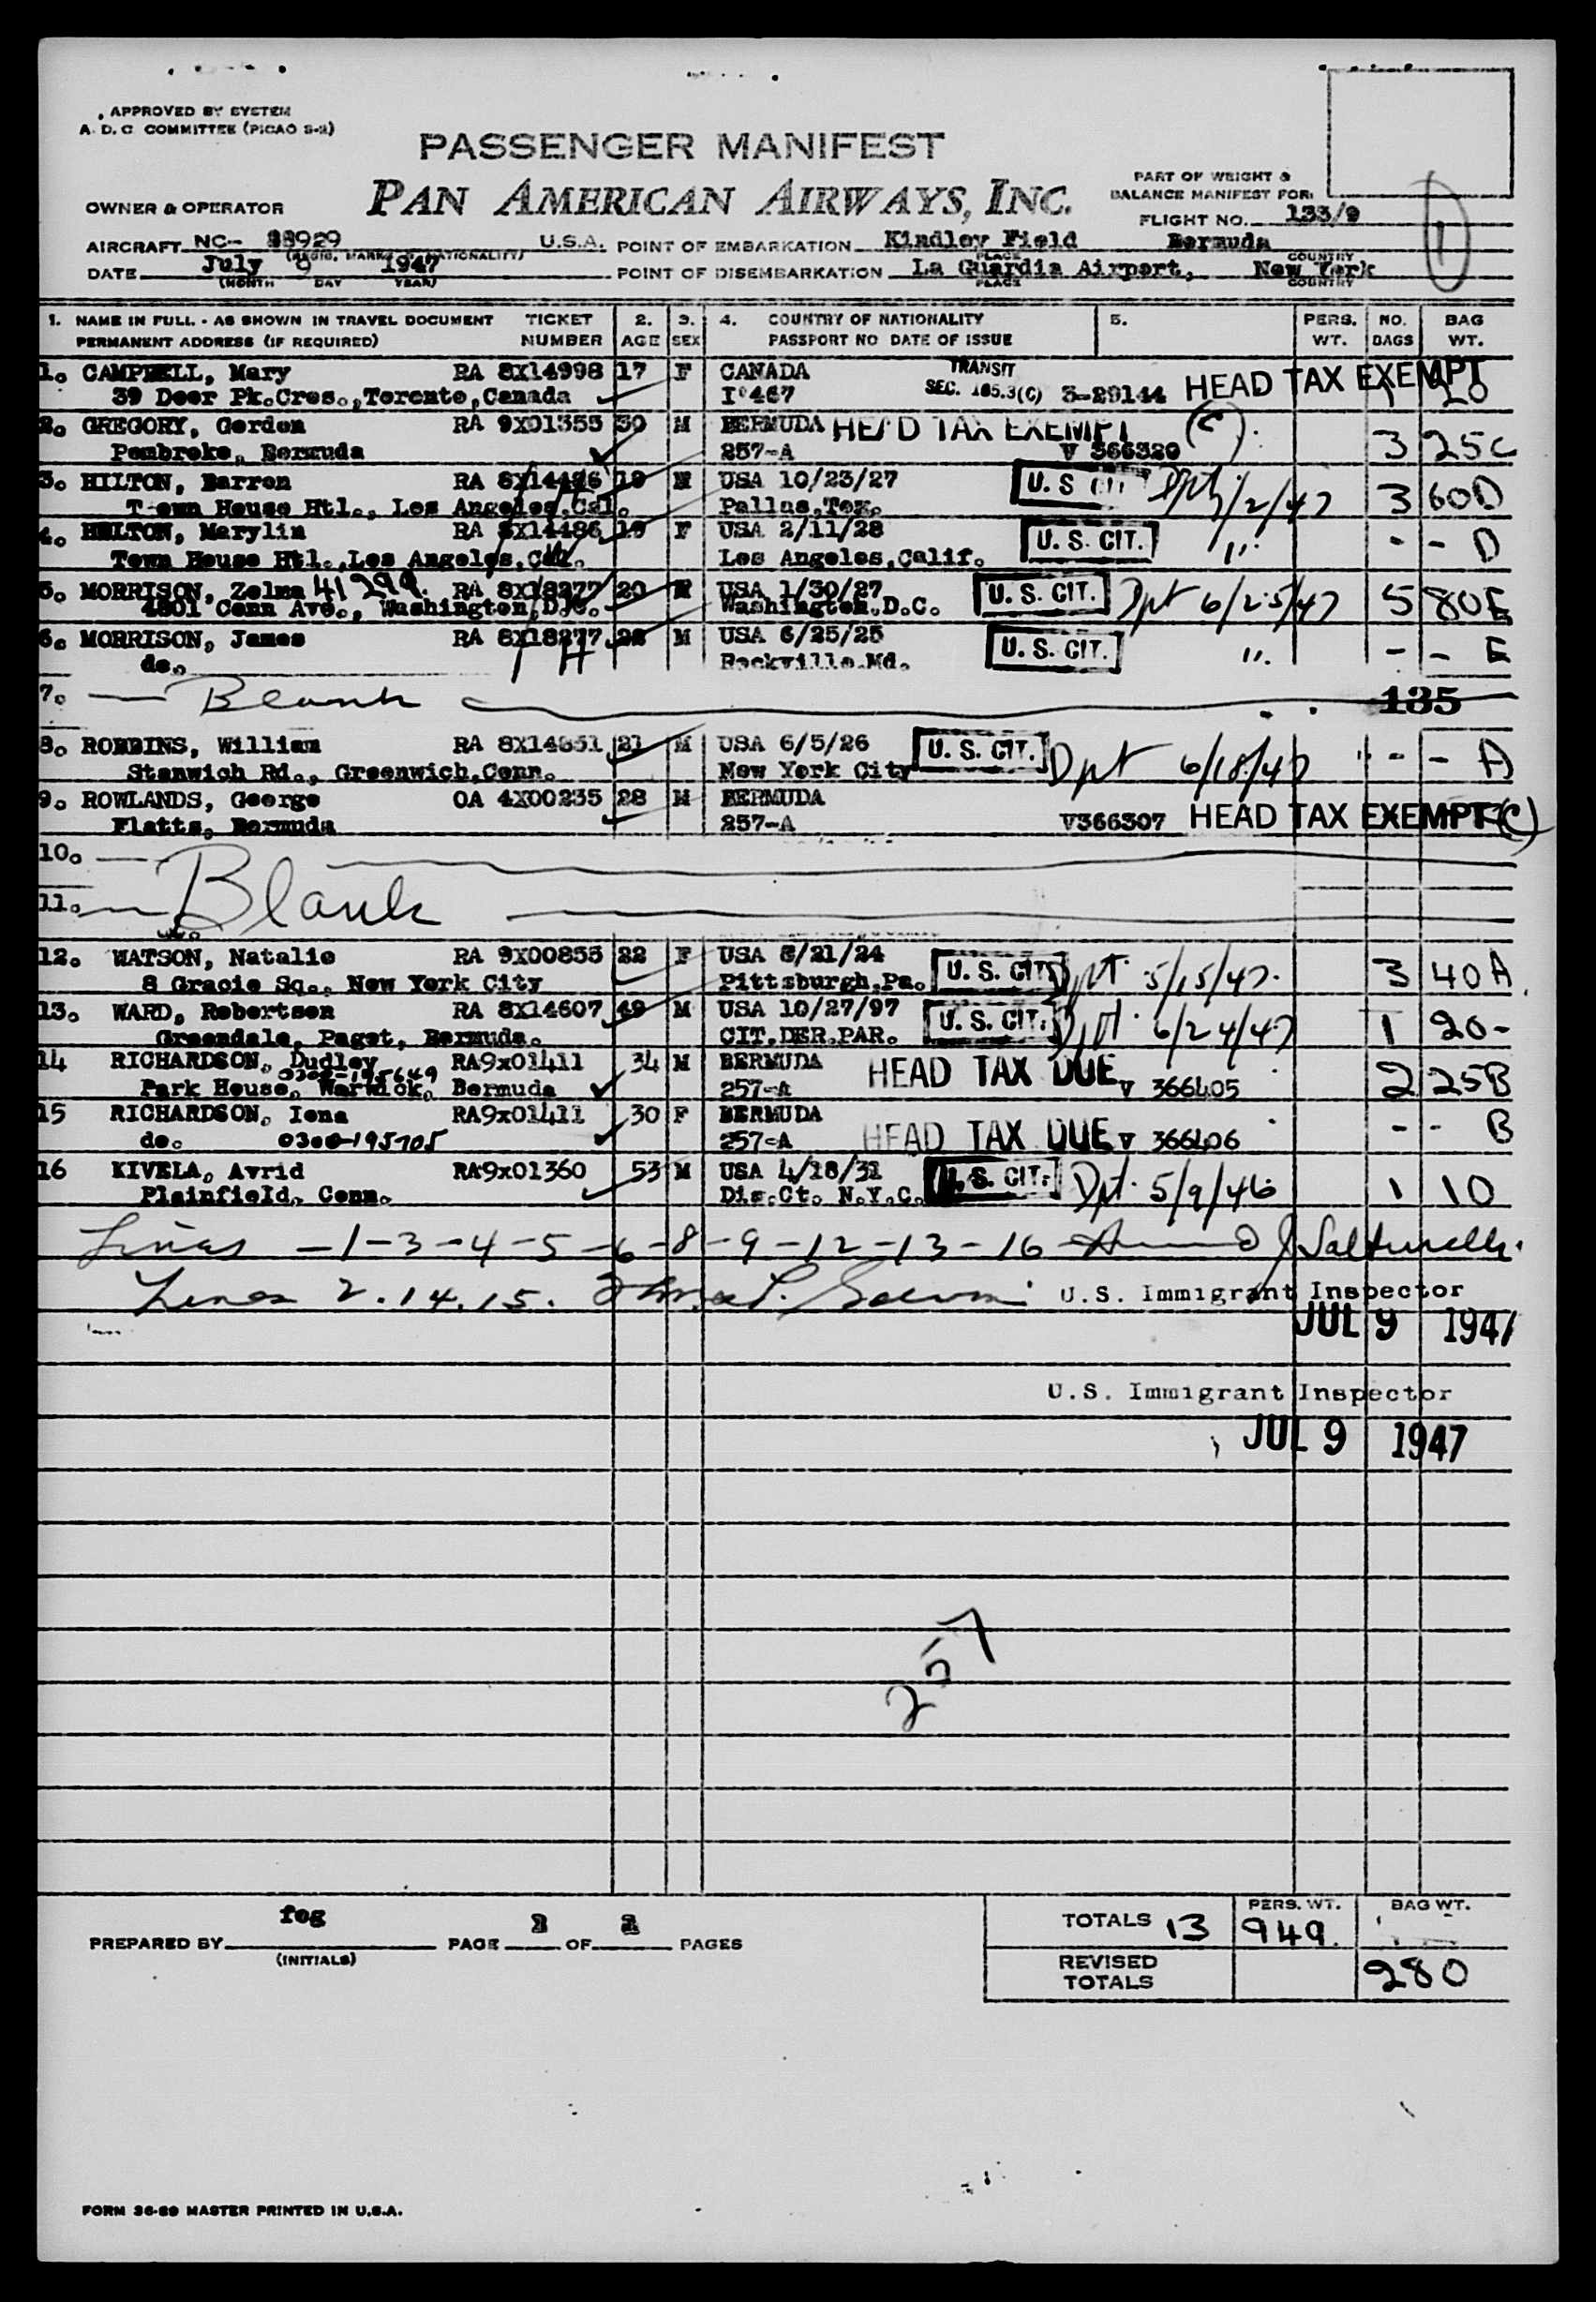 APPROVED BY SYSTEM
A. D. C. COMMITTEE (PICAO S-2)
PASSENGER MANIFEST
PAN AMERICAN AIRWAYS, INC.
PART OF WEIGHT &
BALANCE MANIFEST FOR:
OWNER & OPERATOR
FLIGHT NO. 133/9
AIRCRAFT NC- 88929 U.S.A. POINT OF EMBARKATION Kindley Field Bermuda
(REGIS. MARKS NATIONALITY) PLACE COUNTRY
DATE July 9 1947 POINT OF DISEMBARKATION La Guardia Airport, New York
(MONTH DAY YEAR) PLACE COUNTRY
1. NAME IN FULL - AS SHOWN IN TRAVEL DOCUMENT TICKET 2. 3. 4. COUNTRY OF NATIONALITY 5. PERS. NO. BAG
PERMANENT ADDRESS (IF REQUIRED) NUMBER AGE SEX PASSPORT NO DATE OF ISSUE WT. BAGS WT.
1. CAMPBELL, Mary RA 8X14998 17 F CANADA TRANSIT HEAD TAX EXEMPT 1 20
39 Deer Pk.Cres.,Toronto,Canada I°467 SEC. 165.3(C) 3-29144
2. GREGORY, Gordon RA 9X01355 30 M BERMUDA HEAD TAX EXEMPT (C)
Pembroke, Bermuda 257-A V 366320 3 25 C
3. HILTON, Barron RA 8X14486 19 M USA 10/23/27 U.S. CIT. Dpt 7/2/47 3 60 D
Town House Htl., Los Angeles,Cal. Dallas,Tex.
4. HILTON, Marylin RA 8X14486 19 F USA 2/11/28 U. S. CIT. ". - - D
Town House Htl.,Los Angeles,Cal. Los Angeles,Calif.
5. MORRISON, Zelma 41299. RA 8X18277 20 USA 1/30/27 U. S. CIT. Dpt 6/25/47 5 80 E
4801 Conn Ave., Washington,D.C. Washington,D.C.
6. MORRISON, James RA 8X18277 M USA 6/25/25 U. S. CIT. ". - - E
do. Rockville.Md.
7. Blank 135
8. ROBBINS, William RA 8X14851 21 M USA 6/5/26 U. S. CIT. Dpt 6/18/47 - - A
Stanwich Rd., Greenwich,Conn. New York City
9. ROWLANDS, George OA 4X00235 28 M BERMUDA
Flatts, Bermuda 257-A V366307 HEAD TAX EXEMPT (C)
10.
11. Blank
12. WATSON, Natalie RA 9X00855 22 F USA 8/21/24 U. S. CIT. Dpt. 5/15/47. 3 40 A
8 Gracie Sq., New York City Pittsburgh,Pa.
13. WARD, Robertson RA 8X14607 49 M USA 10/27/97 U. S. CIT. Dpt. 6/24/47 1 20-
Greendale, Paget, Bermuda. CIT.DER.PAR.
14 RICHARDSON, Dudley RA9x01411 34 M BERMUDA HEAD TAX DUE
0300-195649
Park House, Warwick, Bermuda 257-A V 366405 2 25 B
15 RICHARDSON, Iona RA9x01411 30 F BERMUDA
do. 0300-195705 257-A HEAD TAX DUE V 366406 - - B
16 KIVELA, Avrid RA9x01360 53 M USA 4/18/31 U. S. CIT. Dpt. 5/9/46 1 10
Plainfield, Conn. Dis.Ct. N.Y.C.
Lines -1-3-4-5-6-8-9-12-13-16
Lines 2.14.15. U.S. Immigrant Inspector
JUL 9 1947
U.S. Immigrant Inspector
JUL 9 1947
257
TOTALS 13 PERS. WT. 949 BAG WT.
PREPARED BY feg PAGE OF 2 PAGES
(INITIALS)
REVISED TOTALS 280
FORM 36-89 MASTER PRINTED IN U.S.A.